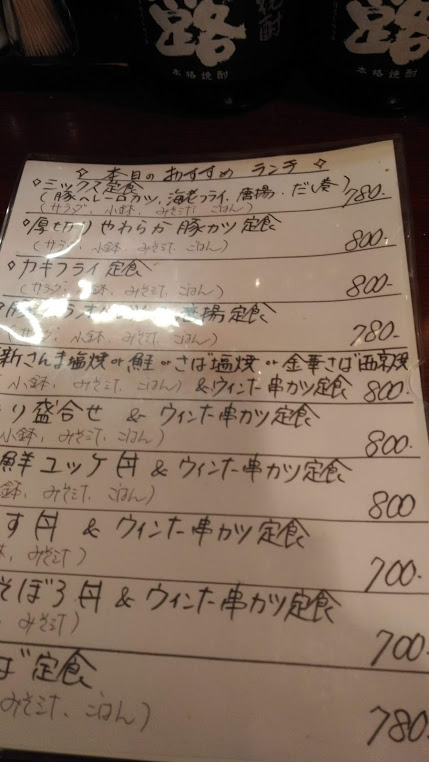 露
本格焼酎
本格焼酎
✧ 本日の おすすめ ランチ ✧
◇ミックス定食
(豚ヘレ一口カツ、海老フライ、唐揚、だし巻) 780-
(サラダ、小鉢、みそ汁、ごはん)
◇厚切りやわらか豚カツ定食
(サラダ、小鉢、みそ汁、ごはん) 800-
◇カキフライ定食
(サラダ、小鉢、みそ汁、ごはん) 800-
唐揚定食
小鉢、みそ汁、ごはん) 780-
新さんま塩焼 or 鮭 or さば塩焼 or 金華さば西京焼
小鉢、みそ汁、ごはん) & ウィンナー串カツ定食 800-
り盛合せ & ウィンナー串カツ定食
小鉢、みそ汁、ごはん) 800-
鮮ユッケ丼 & ウィンナー串カツ定食
鉢、みそ汁、ごはん) 800
す丼 & ウィンナー串カツ定食
みそ汁) 700-
そぼろ丼 & ウィンナー串カツ定食
みそ汁) 700-
ば定食
みそ汁、ごはん) 780-